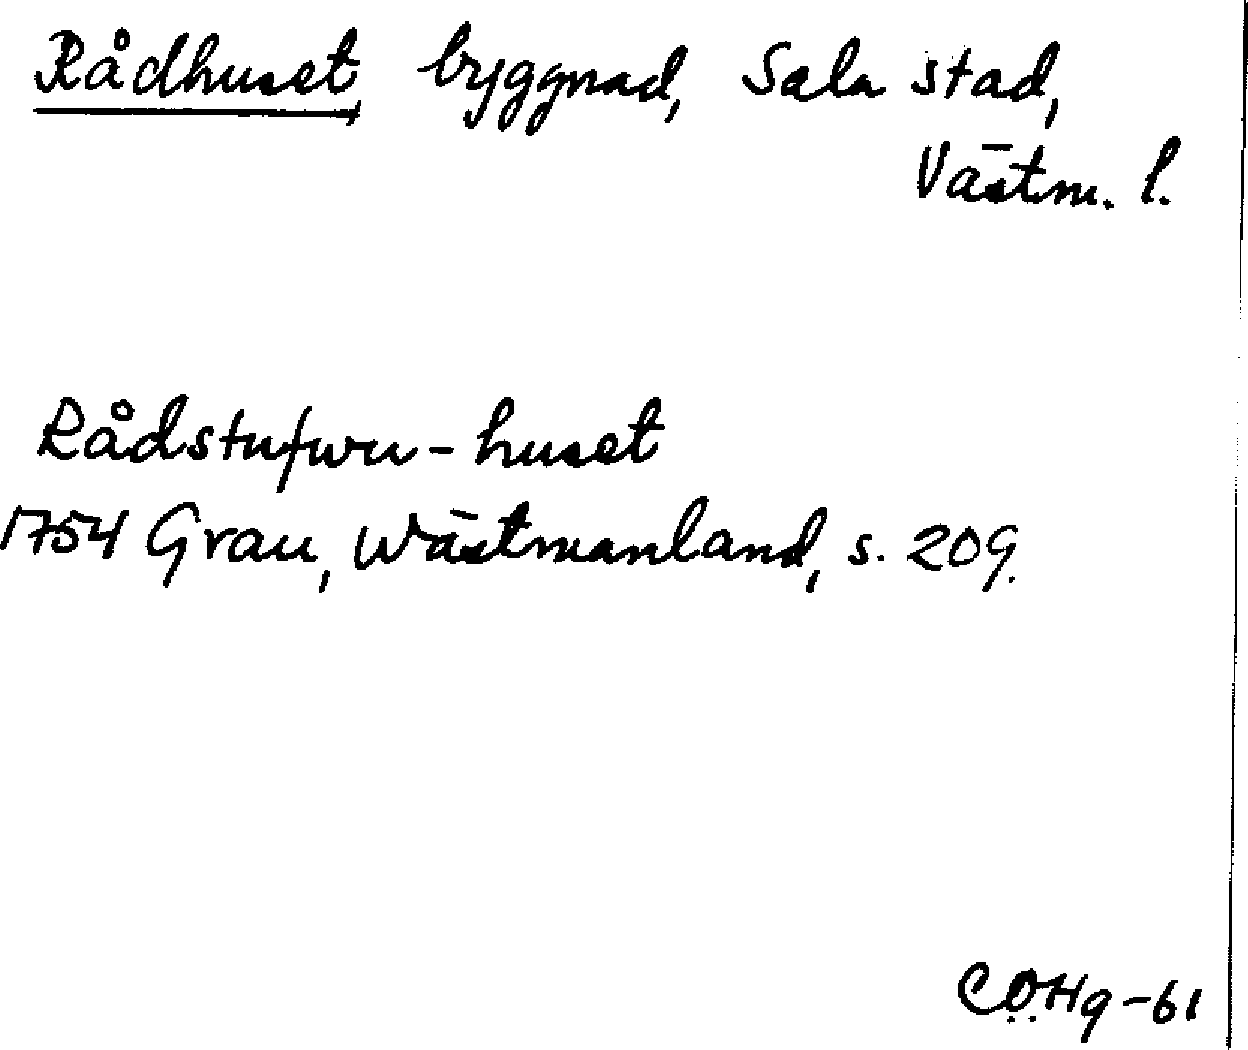 Rådhuset, byggnad, Sala stad,
Västm. l.
Rådstufwu-huset
1754 Grau, Wästmanland, s. 209.
COHg-61